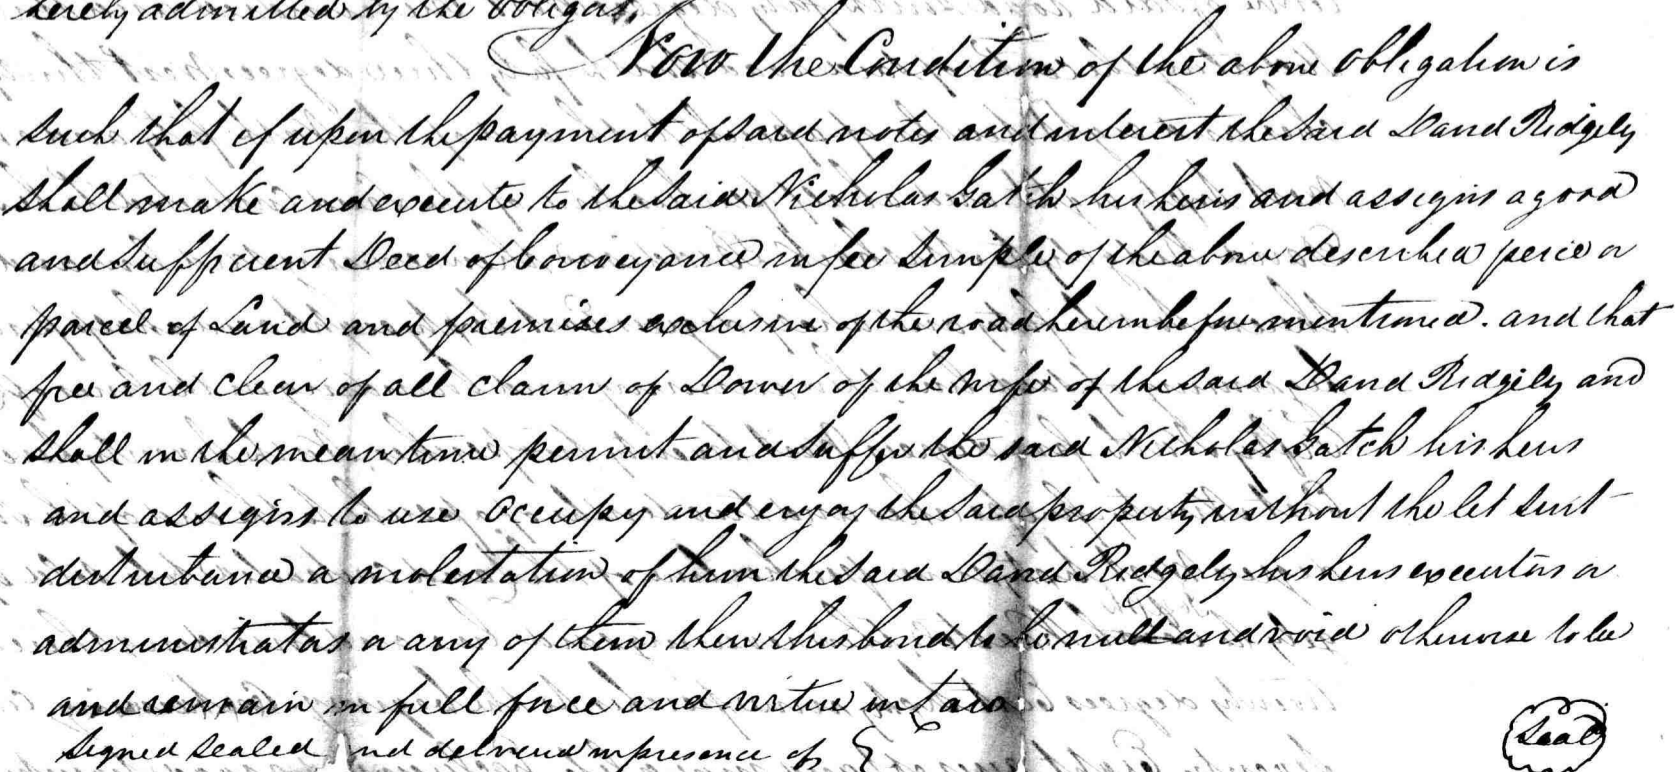 hereby admitted by the obligors.
Now the Condition of the above obligation is
such that if upon the payment of said notes and interest the said David Ridgely
shall make and execute to the said Nicholas Gatch his heirs and assigns a good
and sufficient Deed of Conveyance in fee simple of the above described peice or
parcel of Land and premises exclusive of the road hereinbefore mentioned. and that
free and clear of all claim of Dower of the wife of the said David Ridgely and
shall in the mean time permit and suffer the said Nicholas Gatch his heirs
and assigns to use occupy and enjoy the said property without the let suit
disturbance or molestation of him the said David Ridgely his heirs executors or
administrators or any of them then this bond to be null and void otherwise to be
and remain in full force and virtue in Law
Signed Sealed and delivered in presence of }
Seal